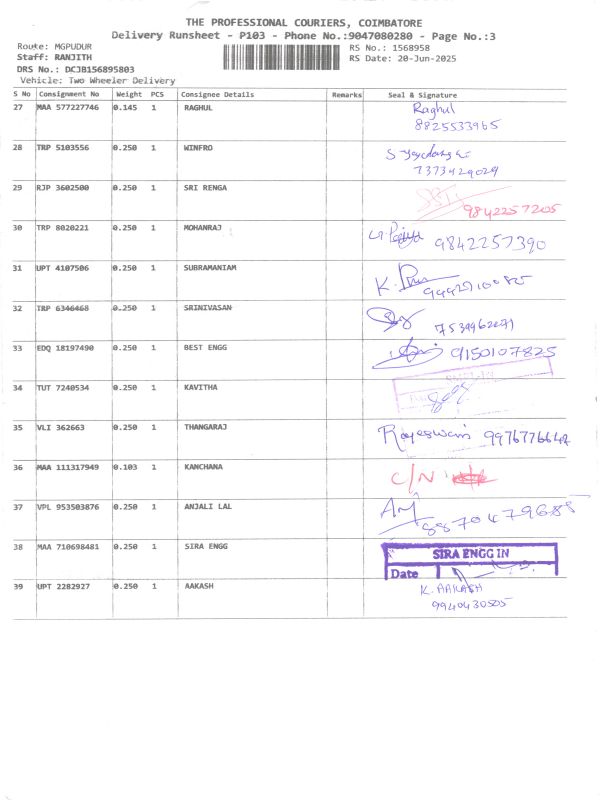 THE PROFESSIONAL COURIERS, COIMBATORE
Delivery Runsheet - P103 - Phone No.:9047080280 - Page No.:3
Route: MGPUDUR RS No.: 1568958
Staff: RANJITH RS Date: 20-Jun-2025
DRS No.: DCJB156895803
Vehicle: Two Wheeler Delivery
S No Consignment No Weight PCS Consignee Details Remarks Seal & Signature
27 MAA 577227746 0.145 1 RAGHUL Raghul
8825533965
28 TRP 5103556 0.250 1 WINFRO
7373429029
29 RJP 3602500 0.250 1 SRI RENGA 9842257205
30 TRP 8020221 0.250 1 MOHANRAJ 9842257390
31 UPT 4107506 0.250 1 SUBRAMANIAM K.
32 TRP 6346468 0.250 1 SRINIVASAN
33 EDQ 18197490 0.250 1 BEST ENGG 9150107825
34 TUT 7240534 0.250 1 KAVITHA
35 VLI 362663 0.250 1 THANGARAJ Rajeswari
36 MAA 111317949 0.103 1 KANCHANA C/N
37 VPL 953503876 0.250 1 ANJALI LAL 8870479688
38 MAA 710698481 0.250 1 SIRA ENGG SIRA ENGG IN
Date
39 UPT 2282927 0.250 1 AAKASH K. AAKASH
9940430505